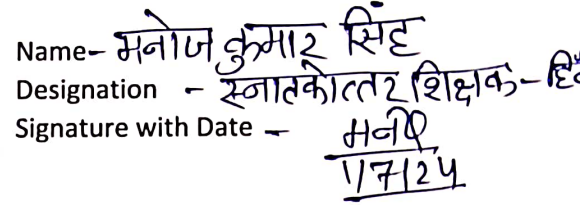 Name- मनोज कुमार सिंह
Designation - स्नातकोत्तर शिक्षक-
Signature with Date -
1/7/24